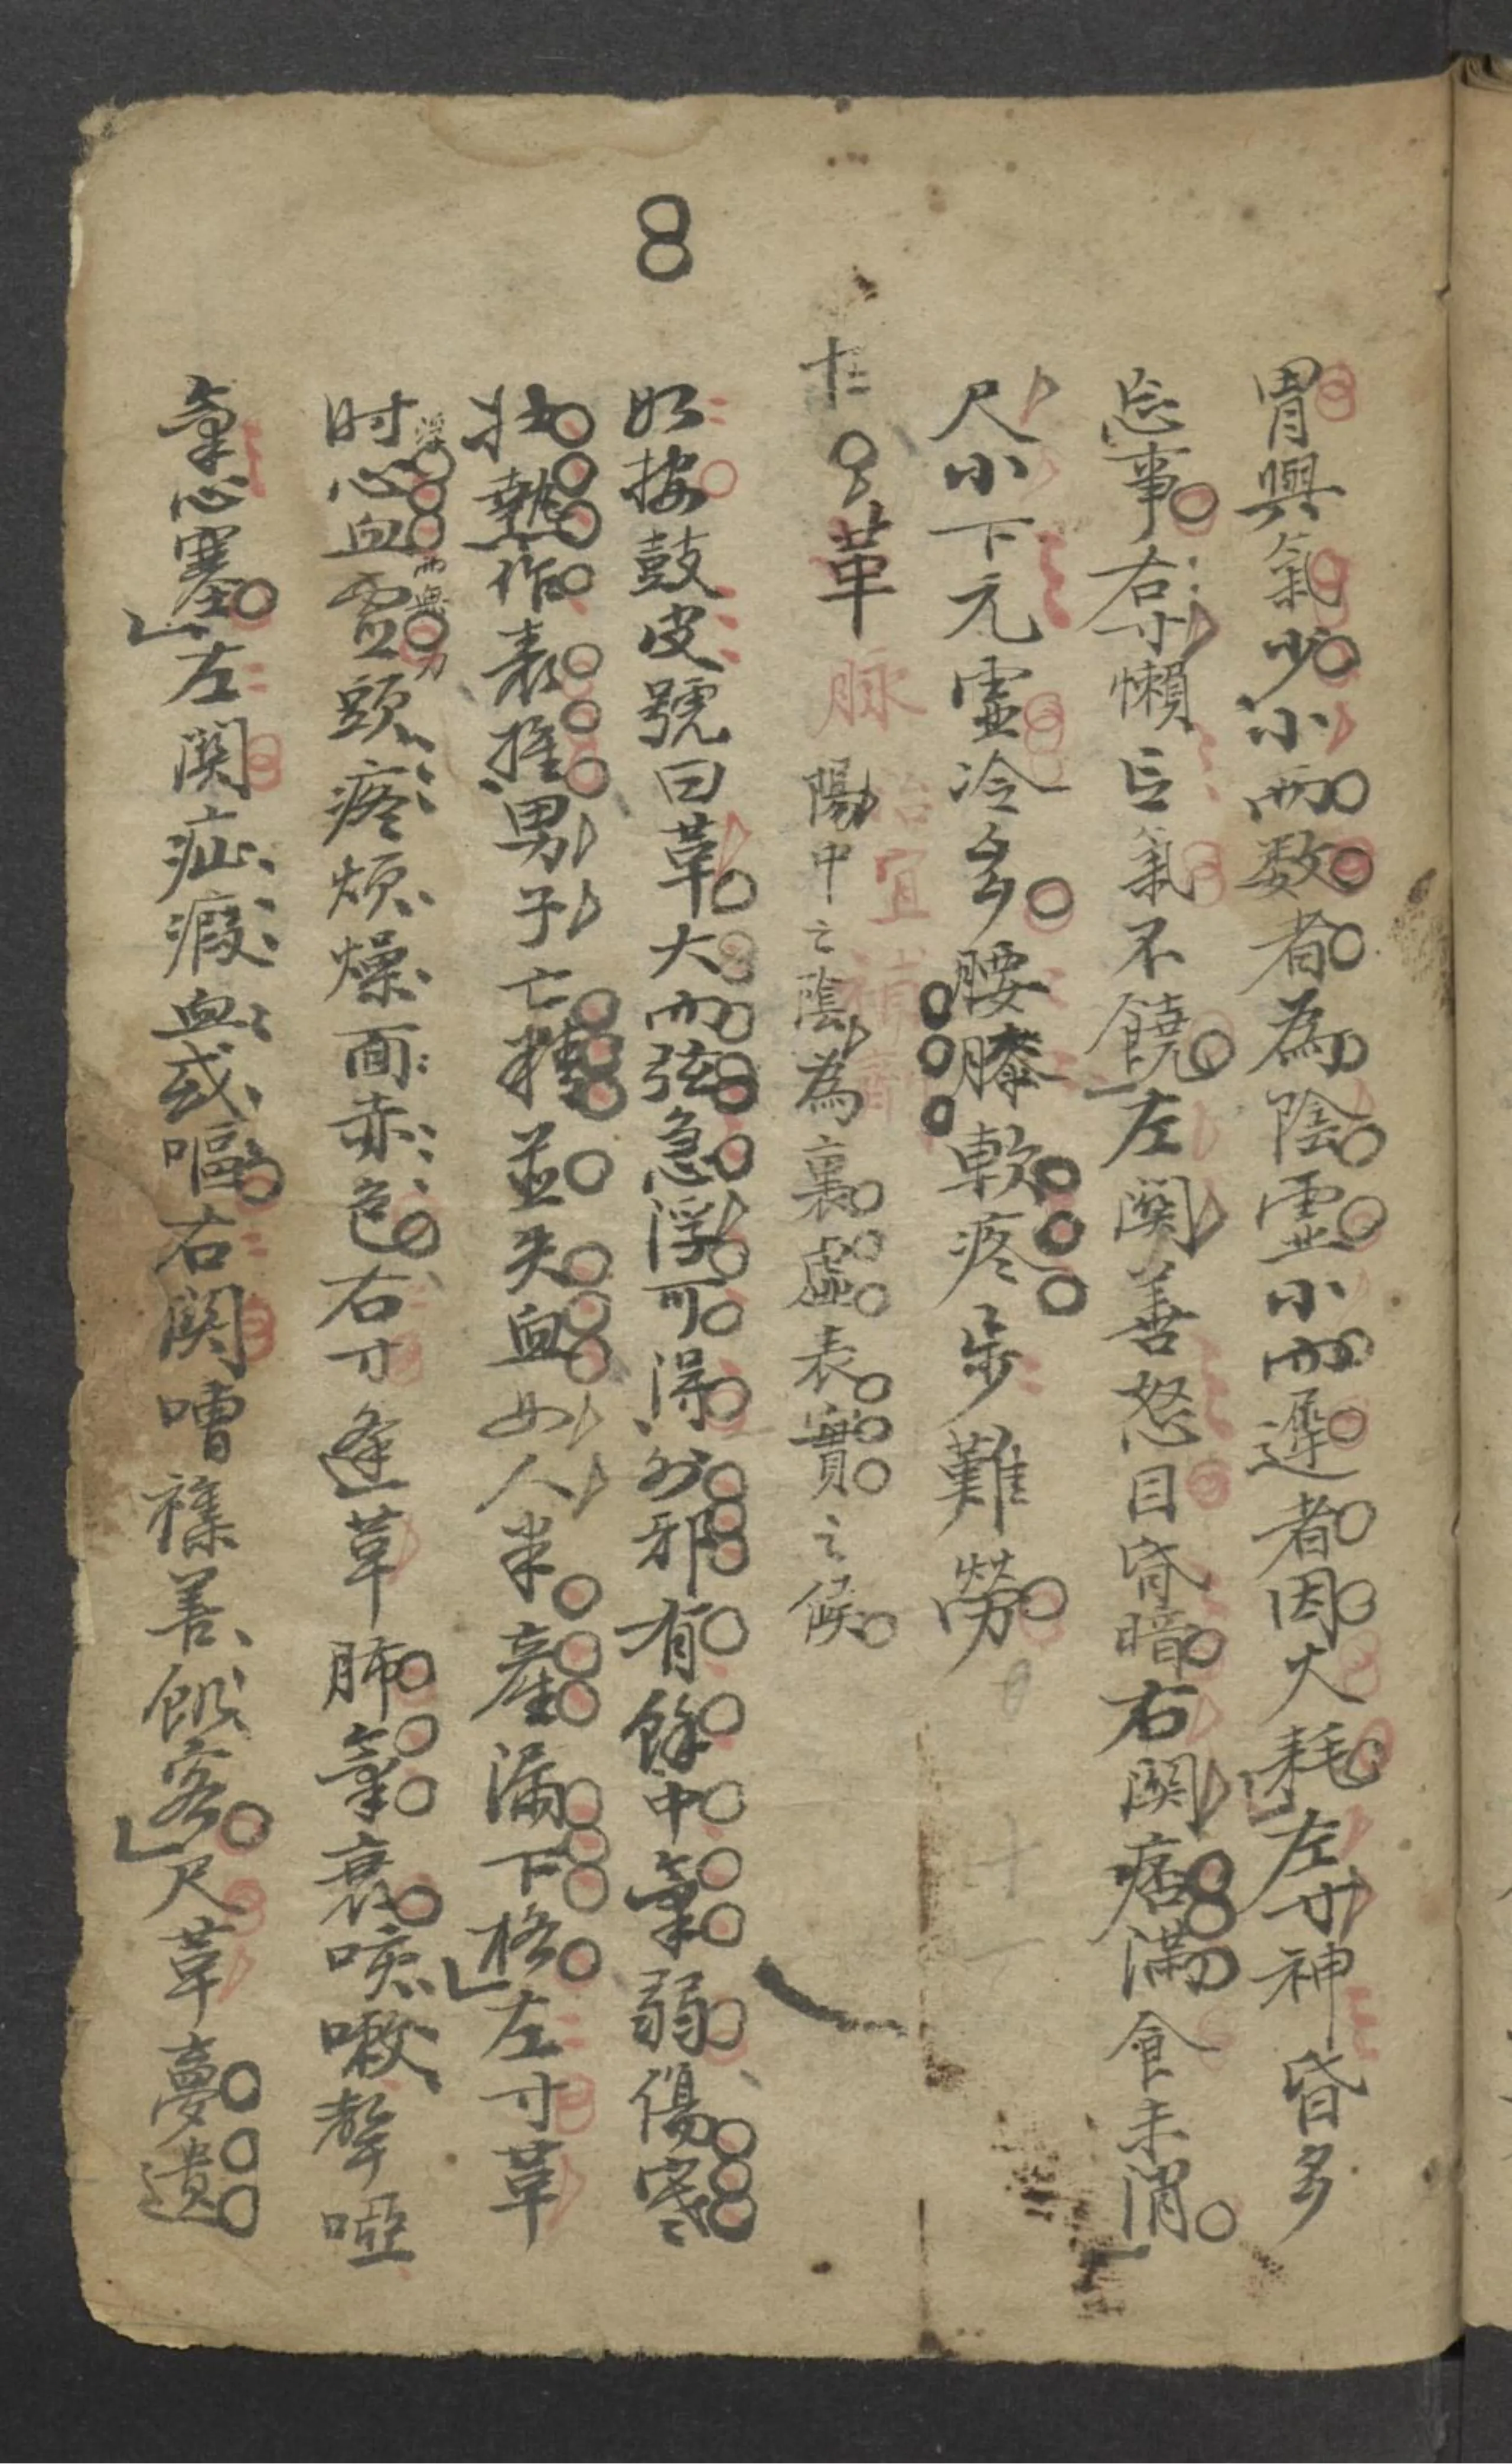 8
胃與氣少小而数者為陰虛小而遲者因大耗左寸神昏多
忘事右寸懶言氣不饒左関善怒目昏暗右関痞滿食未消
尺小下元虛冷多腰膝軟疼步難勞
十二革脉陽中之陰為裏虛表實之候
治宜補劑
如按鼓皮號曰革大而弦急浮可得外邪有餘中氣弱傷寒
壮熱作表推男子亡精並失血女人半產漏下格左寸革
时心血虛頭疼煩燥面赤色右寸逢革肺氣衰咳嗽聲啞
氣心塞左関疝瘕血或嘔右関嘈襍善飢客尺革夢遺